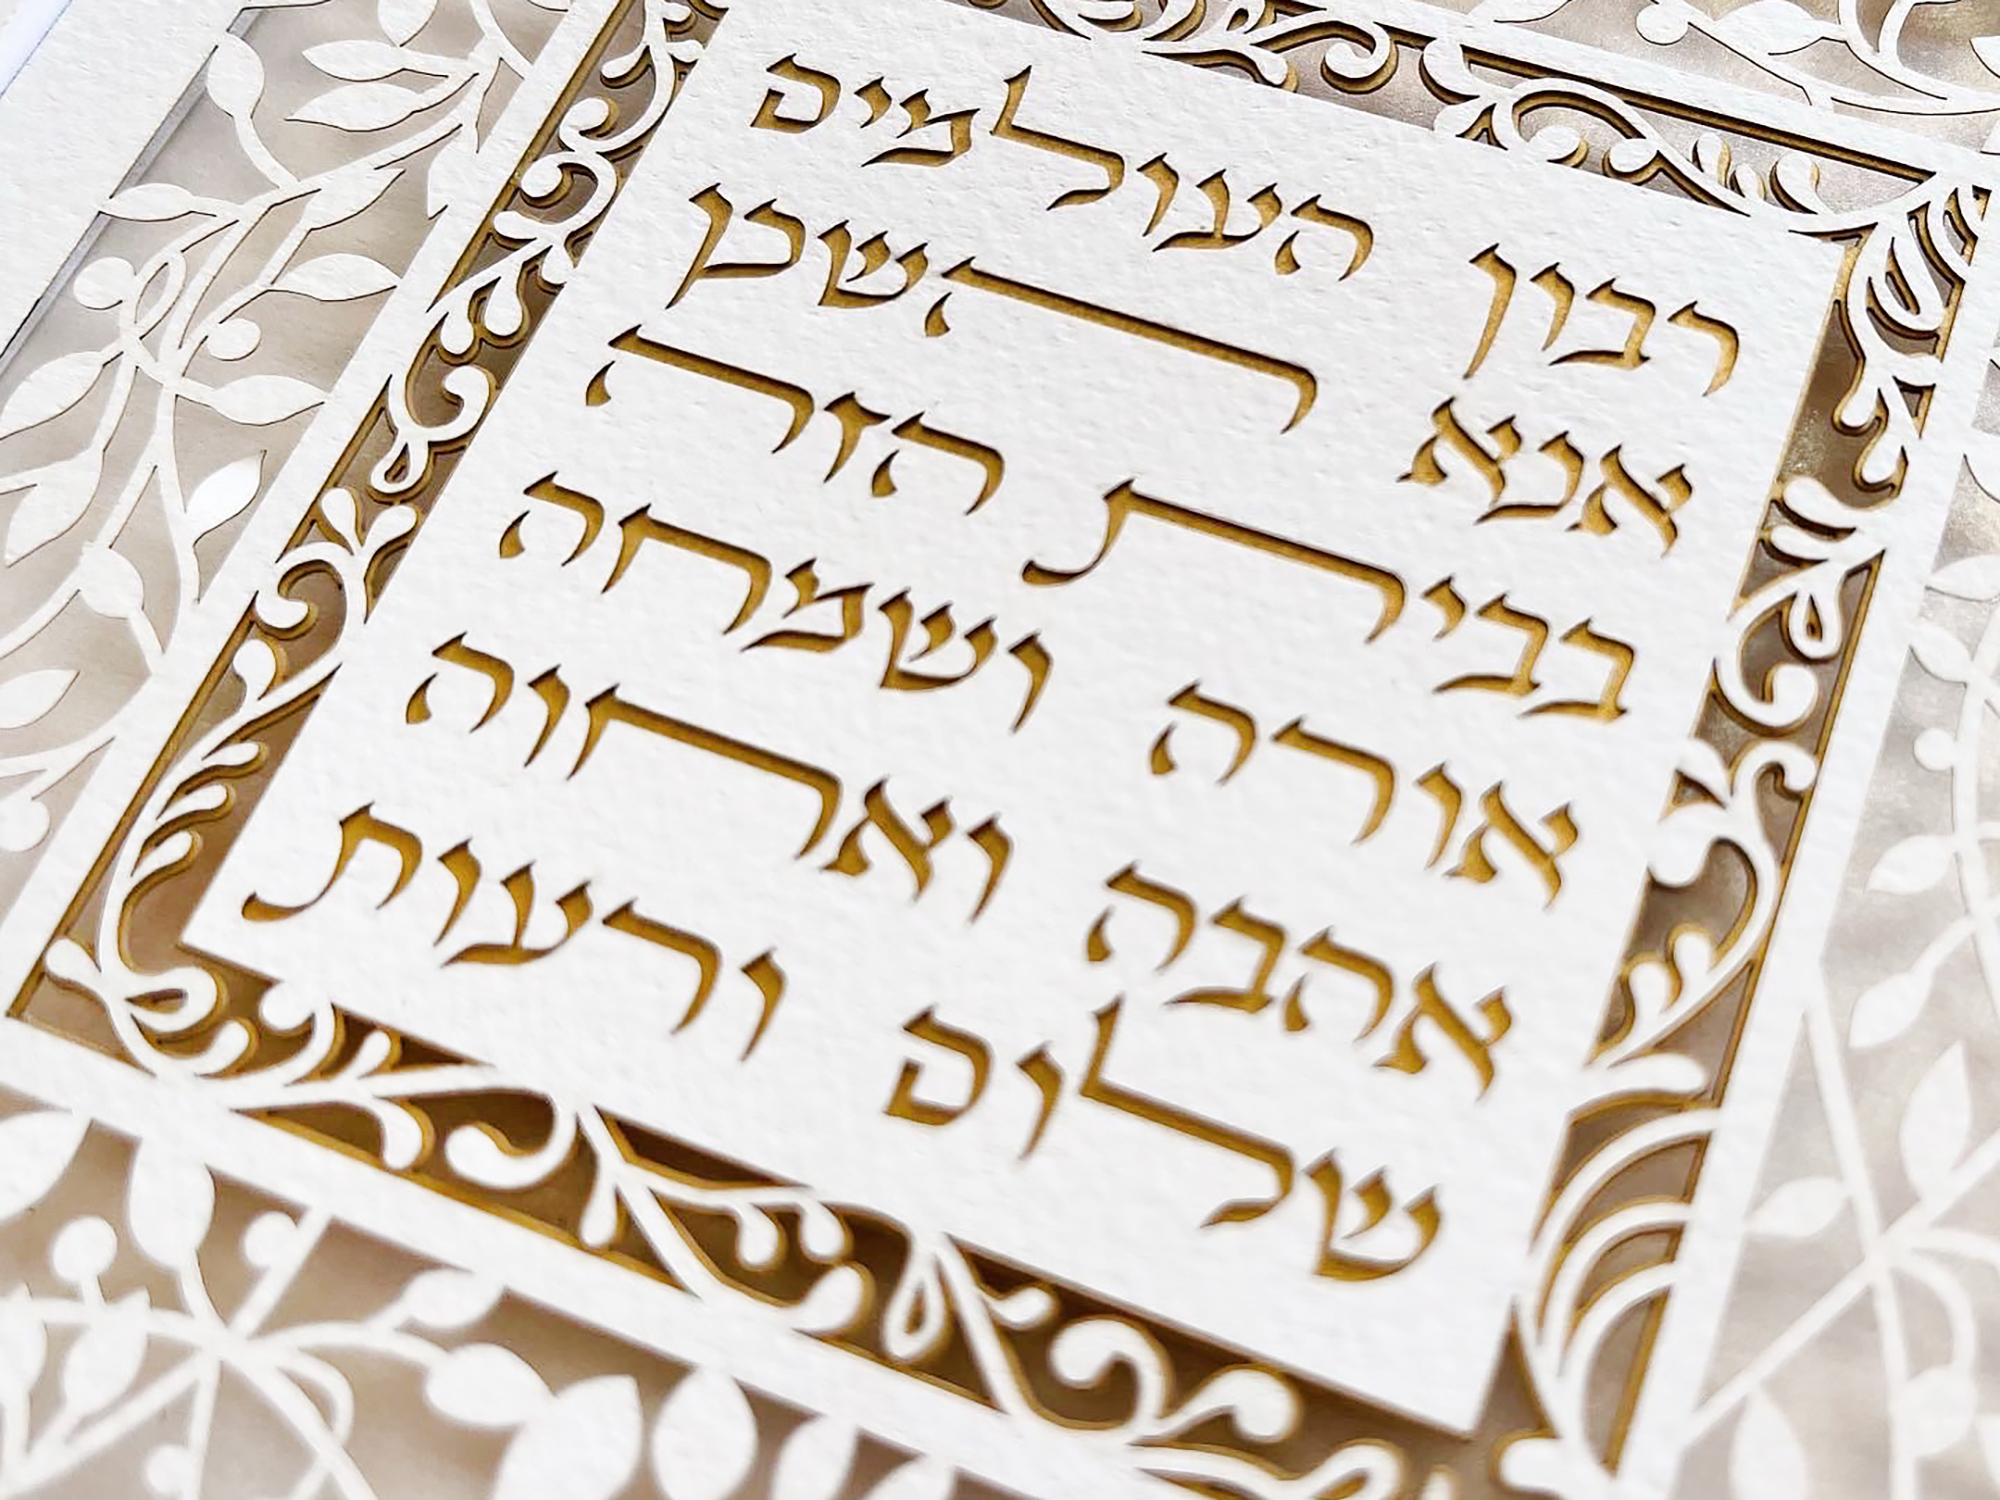 רבון העולמים
אנא השכן
בבית הזה
אורה ושמחה
אהבה ואחוה
שלום ורעות